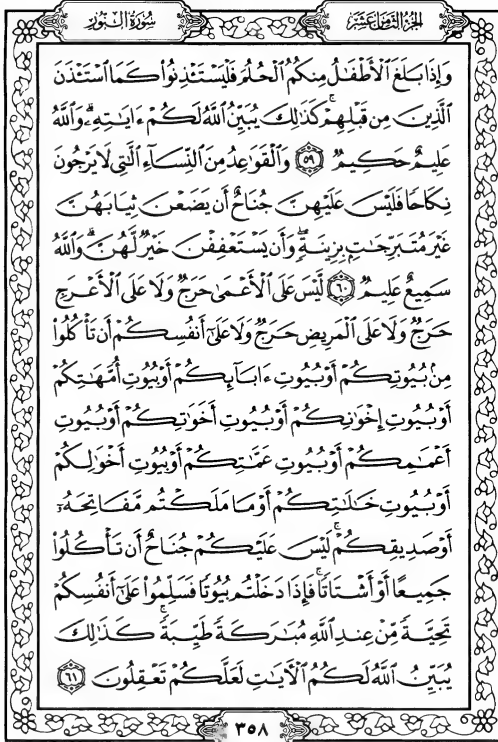 سُورَةُ النُّورِ
الجُزْءُ الثَّامِنَ عَشَرَ
وَإِذَا بَلَغَ ٱلْأَطْفَٰلُ مِنكُمُ ٱلْحُلُمَ فَلْيَسْتَـْٔذِنُوا۟ كَمَا ٱسْتَـْٔذَنَ
ٱلَّذِينَ مِن قَبْلِهِمْ ۚ كَذَٰلِكَ يُبَيِّنُ ٱللَّهُ لَكُمْ ءَايَٰتِهِۦ ۗ وَٱللَّهُ
عَلِيمٌ حَكِيمٌ ۝٥٩ وَٱلْقَوَٰعِدُ مِنَ ٱلنِّسَآءِ ٱلَّٰتِى لَا يَرْجُونَ
نِكَاحًا فَلَيْسَ عَلَيْهِنَّ جُنَاحٌ أَن يَضَعْنَ ثِيَابَهُنَّ
غَيْرَ مُتَبَرِّجَٰتٍۭ بِزِينَةٍ ۖ وَأَن يَسْتَعْفِفْنَ خَيْرٌ لَّهُنَّ ۗ وَٱللَّهُ
سَمِيعٌ عَلِيمٌ ۝٦٠ لَّيْسَ عَلَى ٱلْأَعْمَىٰ حَرَجٌ وَلَا عَلَى ٱلْأَعْرَجِ
حَرَجٌ وَلَا عَلَى ٱلْمَرِيضِ حَرَجٌ وَلَا عَلَىٰٓ أَنفُسِكُمْ أَن تَأْكُلُوا۟
مِنۢ بُيُوتِكُمْ أَوْ بُيُوتِ ءَابَآئِكُمْ أَوْ بُيُوتِ أُمَّهَٰتِكُمْ
أَوْ بُيُوتِ إِخْوَٰنِكُمْ أَوْ بُيُوتِ أَخَوَٰتِكُمْ أَوْ بُيُوتِ
أَعْمَٰمِكُمْ أَوْ بُيُوتِ عَمَّٰتِكُمْ أَوْ بُيُوتِ أَخْوَٰلِكُمْ
أَوْ بُيُوتِ خَٰلَٰتِكُمْ أَوْ مَا مَلَكْتُم مَّفَاتِحَهُۥٓ
أَوْ صَدِيقِكُمْ ۚ لَيْسَ عَلَيْكُمْ جُنَاحٌ أَن تَأْكُلُوا۟
جَمِيعًا أَوْ أَشْتَاتًا ۚ فَإِذَا دَخَلْتُم بُيُوتًا فَسَلِّمُوا۟ عَلَىٰٓ أَنفُسِكُمْ
تَحِيَّةً مِّنْ عِندِ ٱللَّهِ مُبَٰرَكَةً طَيِّبَةً ۚ كَذَٰلِكَ
يُبَيِّنُ ٱللَّهُ لَكُمُ ٱلْءَايَٰتِ لَعَلَّكُمْ تَعْقِلُونَ ۝٦١
٣٥٨